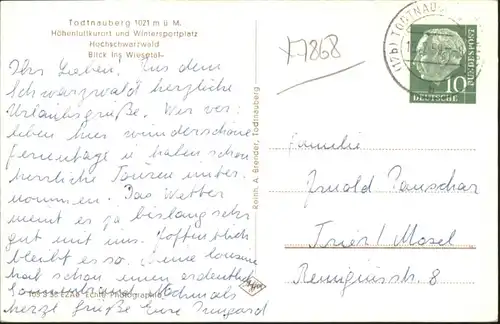 Todtnauberg 1021 m ü M.
Höhenluftkurort und Wintersportplatz
Hochschwarzwald
Blick ins Wiesetal
Ihr Lieben, Aus dem
Schwarzwald herzliche
Urlaubsgrüße. Wir ver-
leben hier wunderschöne
Ferientage u haben schon
herrliche Touren unter-
nommen. Das Wetter
meint es ja bislang sehr
gut mit uns. Hoffentlich
bleibt es so.
hat schon einen ordentlich
Nochmals
herzl Grüße Eure Irmgard
Echte Photographie
Reinh. A. Brender, Todtnauberg
x7868
(17b) TODTNAU
10
DEUTSCHE
BUNDESPOST
Familie
Arnold
Trier / Mosel
Remigiusstr. 8